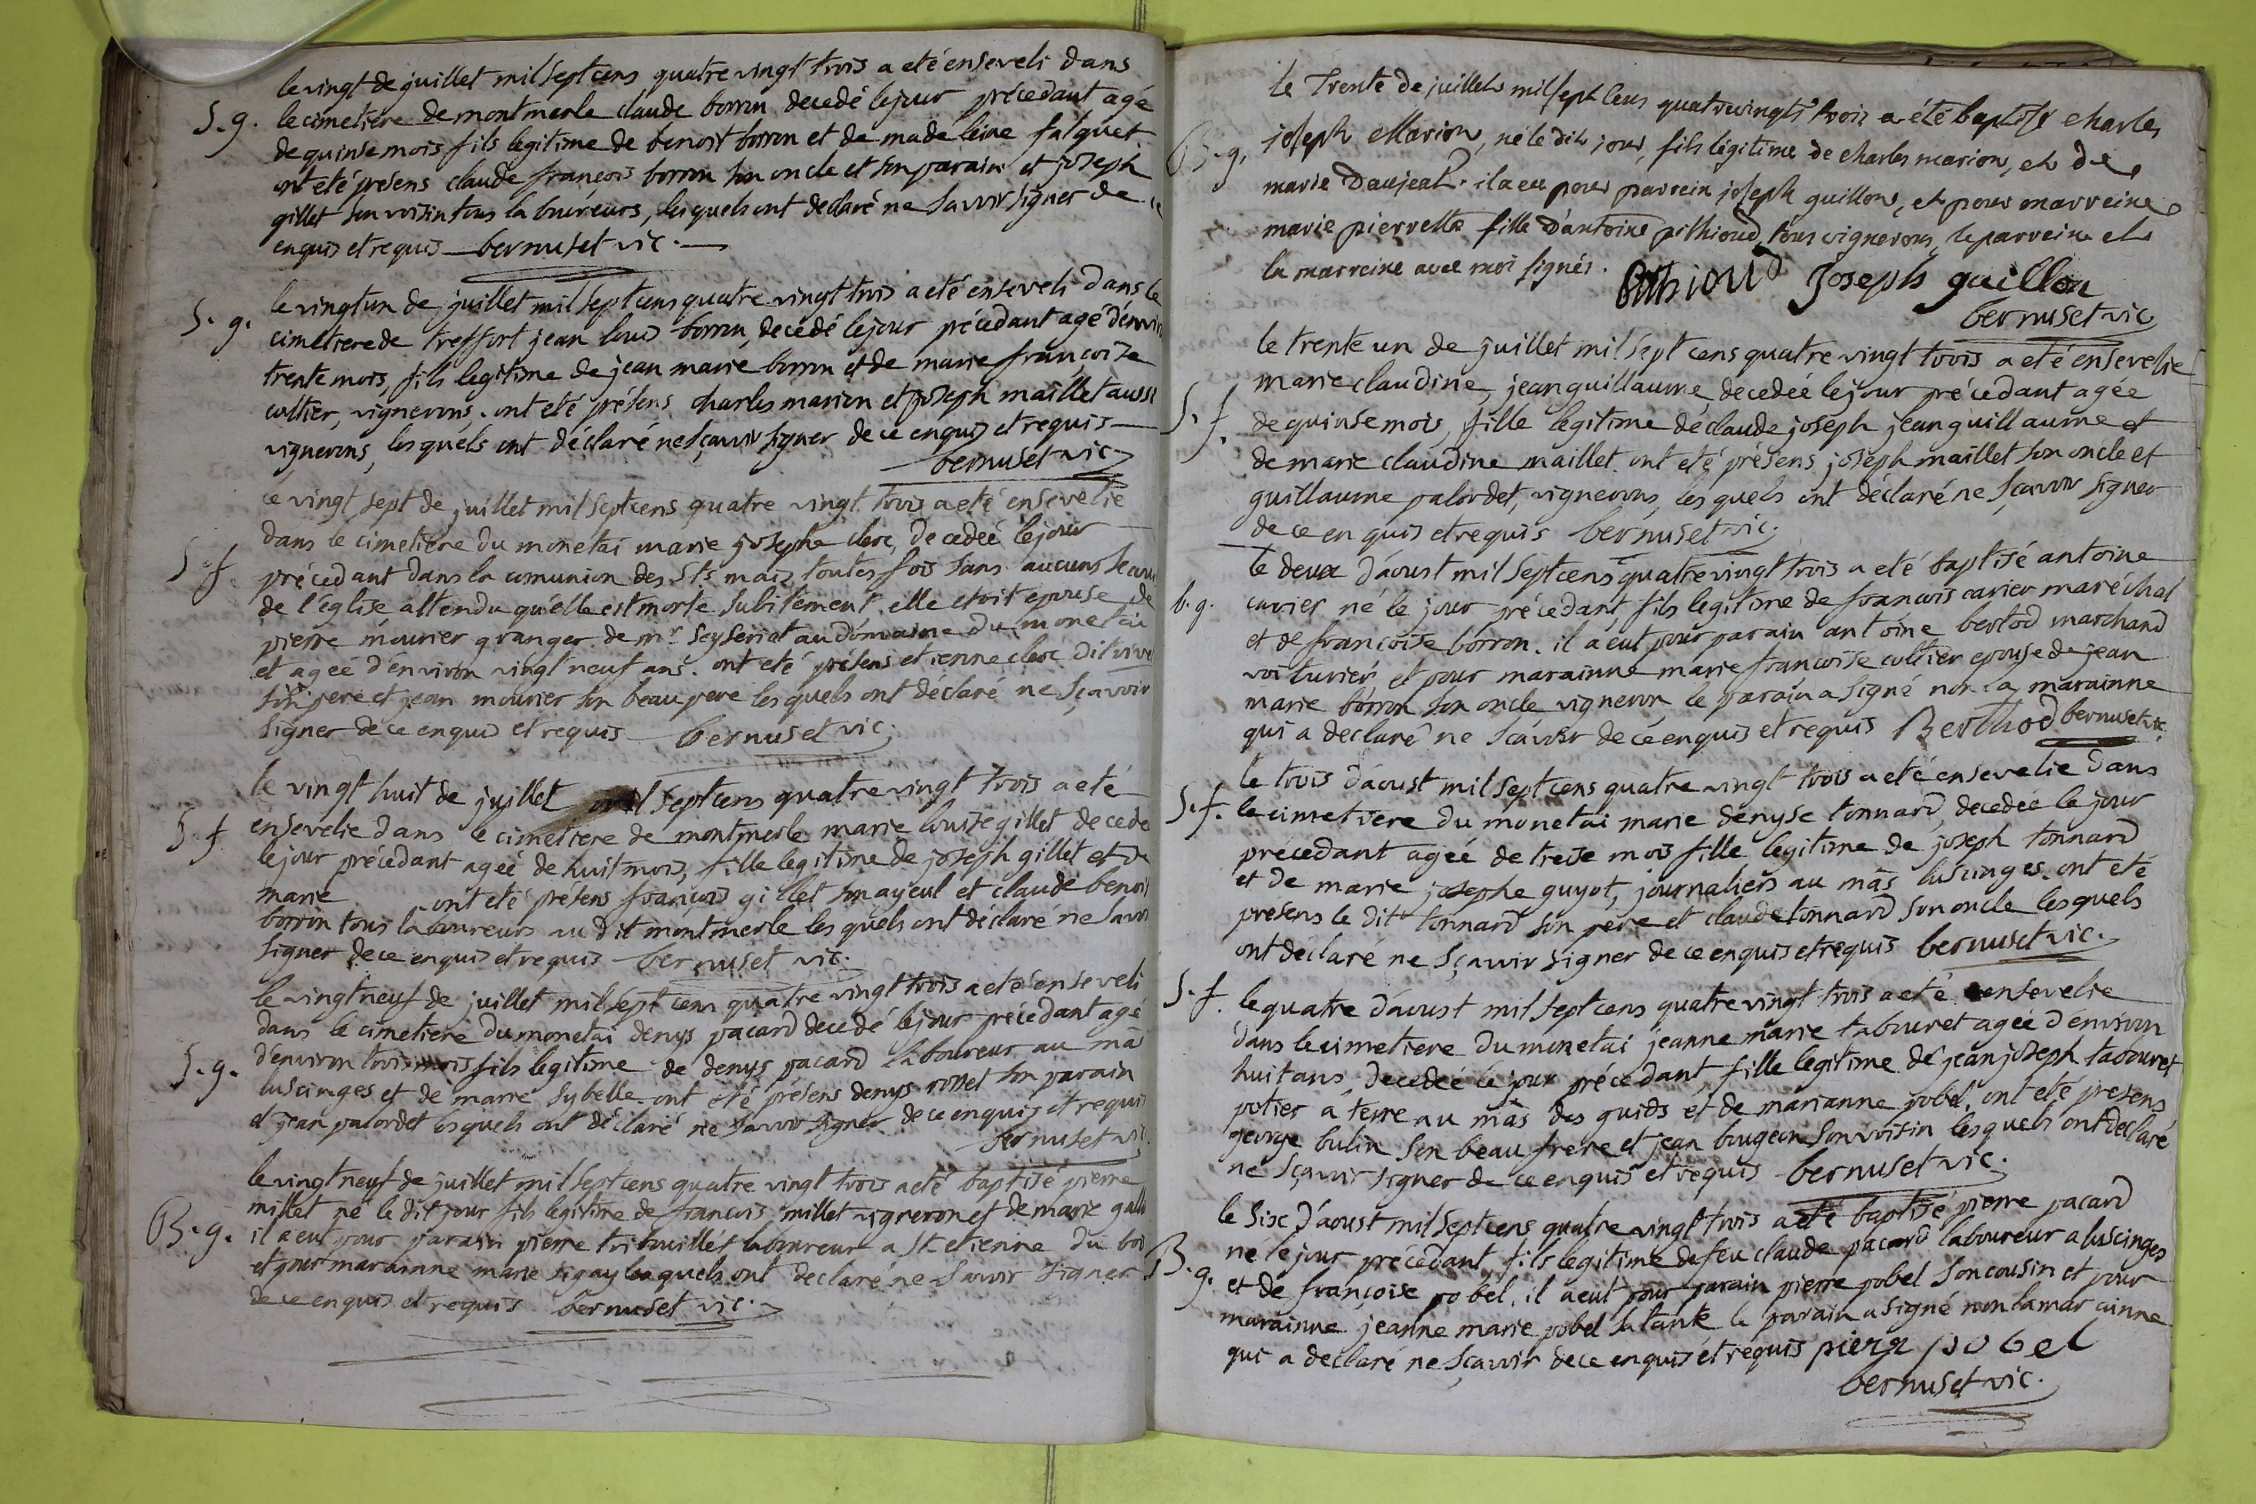 le vingt de juillet mil sept cens quatre vingt trois a eté enseveli dans
S. g. le cimetiére de montmerle claude borron decedé le jour précedant agé
de quinse mois fils legitime de benoit borron et de madeleine falquet
ont eté présens claude francois borron son oncle et son parain et joseph
gillet son voisin tous laboureurs, lesquels ont declaré ne savoir signer de ce
enquis et requis bernuset vic.
le vingt un de juillet mil sept cens quatre vingt trois a eté enseveli dans le
S. g. cimetiere de treffort jean louis borron, decédé le jour précedant agé d'environ
trente mois, fils legitime de jean marie borron et de marie francoise
cultier, vignerons. ont eté présens charles marion et joseph maillet aussi
vignerons, lesquels ont déclaré ne sçavoir signer de ce enquis et requis
bernuset vic
ce vingt sept de juillet mil sept cens quatre vingt trois a eté ensevelie
dans le cimetiére du monetai marie josephe clerc, decedeé le jour
S. f. précedant dans la comunion des Sts mais toutes fois sans aucuns secours
de l'église attendu qu'elle est morte subitement elle etoit epouse de
pierre mourier granger de mr seyseriat au domaine du monetai
et ageé d'énviron vingt neuf ans. ont eté présens etienne clerc dit vive
son pere et jean mourier son beau pere lesquels ont déclaré ne sçavoir
signer de ce enquis et requis bernuset vic.
le vingt huit de juillet mil sept cens quatre vingt trois a eté
S. f. ensevelie dans le cimetiere de montmerle marie louise gillet decedé
le jour précedant ageé de huit mois, fille legitime de joseph gillet et de
marie ont eté présens francois gillet son ayeul et claude benoit
borron tous laboureurs au dit montmerle lesquels ont déclaré ne savoir
signer de ce enquis et requis bernuset vic.
le vingt neuf de juillet mil sept cens quatre vingt trois a eté enseveli
dans le cimetiere du monetai denys pacard decedé le jour précedant agé
S. g. d'environ trois mois fils legitime de denys pacard laboureur au mas
luscinges et de marie sybelle. ont eté présens denys rosset son parain
et jean palordet lesquels ont déclaré ne savoir signer de ce enquis et requis
bernuset vic.
le vingt neuf de juillet mil sept cens quatre vingt trois a eté baptisé pierre
millet né le dit jour fils legitime de francois millet vigneron et de marie
B. g. il a eut pour parain pierre tribouillet laboureur a St etienne du bois
et pour marainne marie sigay lesquels ont declaré ne savoir signer
de ce enquis et requis bernuset vic.
le Trente de juillet mil sept cens quatrevingts trois a été baptisé charles
B. g. joseph Marion, né le dit jour, fils légitime de charles marion, et de
marie Daujeat. il a eu pour parrein joseph guillon, et pour marreine
marie pierrette fille d'antoine pithioud, tous vignerons, le parrein et
la marreine avec moi signés.
Pithioud Joseph guillon
bernuset vic
le trente un de juillet mil sept cens quatre vingt trois a eté ensevelie
marie claudine, jeanguillaume decedeé le jour précedant agée
S. f. de quinse mois, fille legitime de claude joseph jeanguillaume et
de marie claudine maillet. ont eté présens joseph maillet son oncle et
guillaume palordet, vignerons, lesquels ont déclaré ne sçavoir signer
de ce enquis et requis bernuset vic.
le deux d'aoust mil sept cens quatre vingt trois a eté baptisé antoine
b. g. carier né le jour précedant, fils legitime de francois carier maréchal
et de francoise borron. il a eut pour parain antoine bertod marchand
voiturier et pour marainne marie francoise cultier epouse de jean
marie borron son oncle vigneron le parain a signé non la marainne
qui a declaré ne sçavoir de ce enquis et requis Berthod bernuset vic.
le trois d'aoust mil sept cens quatre vingt trois a eté ensevelie dans
S. f. le cimetiere du monetai marie denyse tonnard, decedée le jour
précedant ageé de treise mois fille legitime de joseph tonnard
et de marie josephe guyot, journaliers au mas luscinges. ont eté
présens le dit tonnard son pere et claude tonnard son oncle lesquels
ont declaré ne sçavoir signer de ce enquis et requis bernuset vic.
S. f. le quatre d'aoust mil sept cens quatre vingt trois a eté ensevelie
dans le cimetiere du monetai jeanne marie tabouret agée d'environ
huit ans, decedeé le jour précedant, fille legitime de jean joseph tabouret
potier a terre au mas des guids et de marianne pobel. ont eté présens
george bulin son beau frere et jean bougeon son voisin lesquels ont declaré
ne sçavoir signer de ce enquis et requis bernuset vic.
le six d'aoust mil sept cens quatre vingt trois a eté baptisé pierre pacard
B. g. né le jour précédant, fils legitime de feu claude pacard laboureur a luscinges
et de françoise pobel. il a eut pour parain pierre pobel son cousin et pour
marainne jeanne marie pobel sa tante le parain a signé non la marainne
qui a declaré ne sçavoir de ce enquis et requis pierr pobel
bernuset vic.